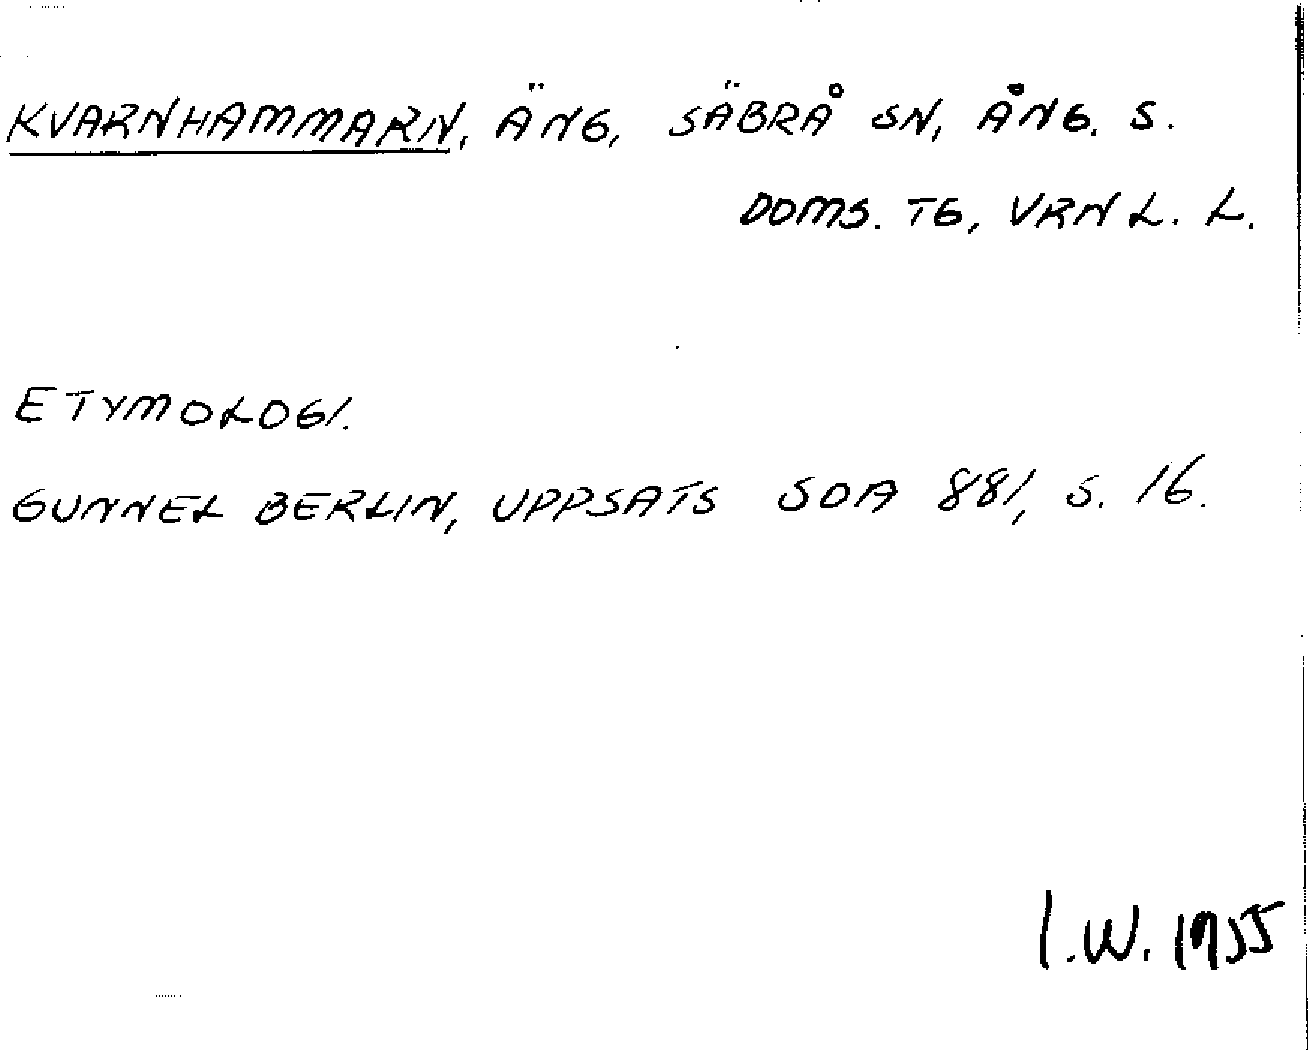 KVARNHAMMARN, ÄNG, SÄBRÅ SN, ÅNG. S.
DOMS. TG, VRNL. L.
ETYMOLOGI.
GUNNEL BERLIN, UPPSATS SOA 881, S. 16.
I.W. 1955